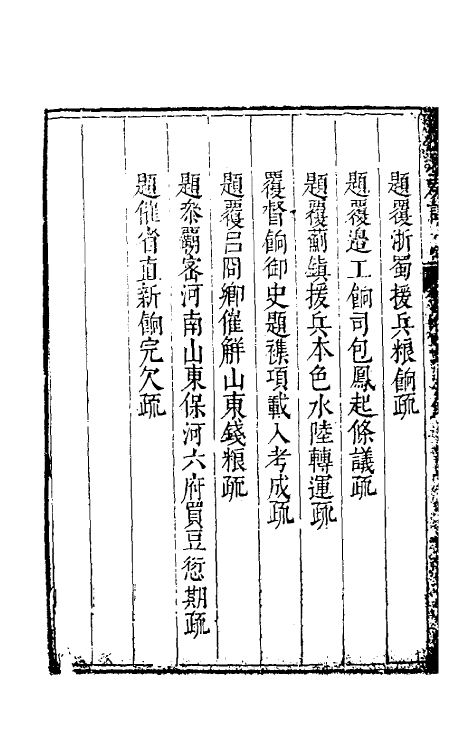 題覆浙蜀援兵粮餉疏
題覆邉工餉司包鳳起條議疏
題覆薊鎮援兵本色水陸轉運疏
覆督餉御史題襍項載入考成疏
題覆呂問卿催觧山東錢粮疏
題叅覇密河南山東保河六府買豆愆期疏
題催省直新餉完欠疏